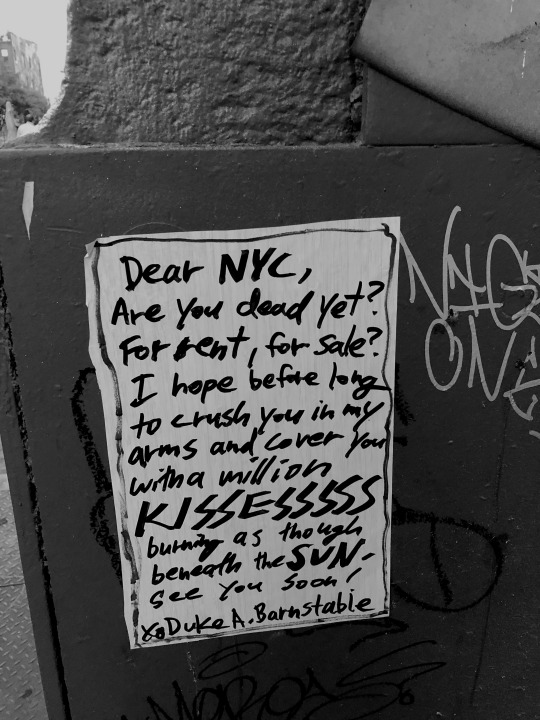 Dear NYC,
Are you dead yet?
For rent, for sale?
I hope before long
to crush you in my
arms and cover you
with a million
KISSESSSSS
burning as though
beneath the SUN-
see you soon!
xo Duke A. Barnstable
ON